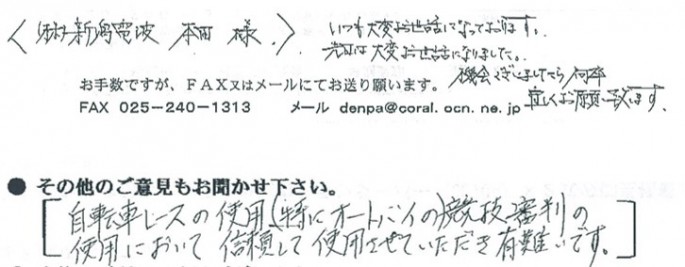 〈(株)新潟電波 本田 様.〉
いつも大変お世話になっております。
先日は大変お世話になりました。
機会ございましたら何卒
宜しくお願い致します.
お手数ですが、ＦＡＸ又はメールにてお送り願います。
FAX 025-240-1313 メール denpa@coral.ocn.ne.jp
● その他のご意見もお聞かせ下さい。
[自転車レースの使用(特にオートバイの)競技審判の
使用において信頼して使用させていただき有難いです。]